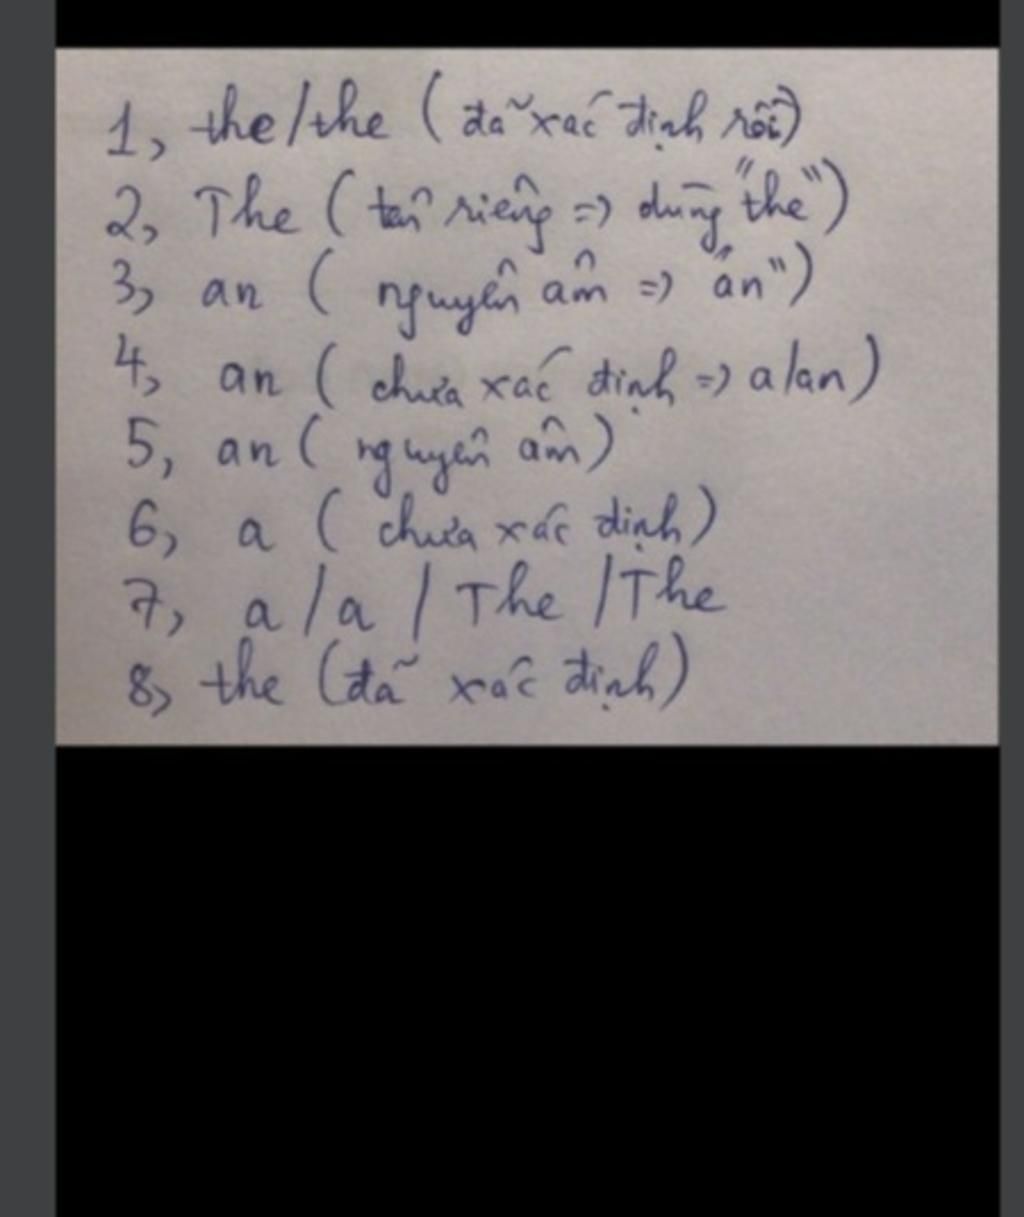 1, the/the (đã xác định rồi)
2, The (tên riêng => dùng "the")
3, an ( nguyên âm => "an")
4, an ( chưa xác định => a/an)
5, an ( nguyên âm)
6, a ( chưa xác định)
7, a/a / The /The
8, the (đã xác định)